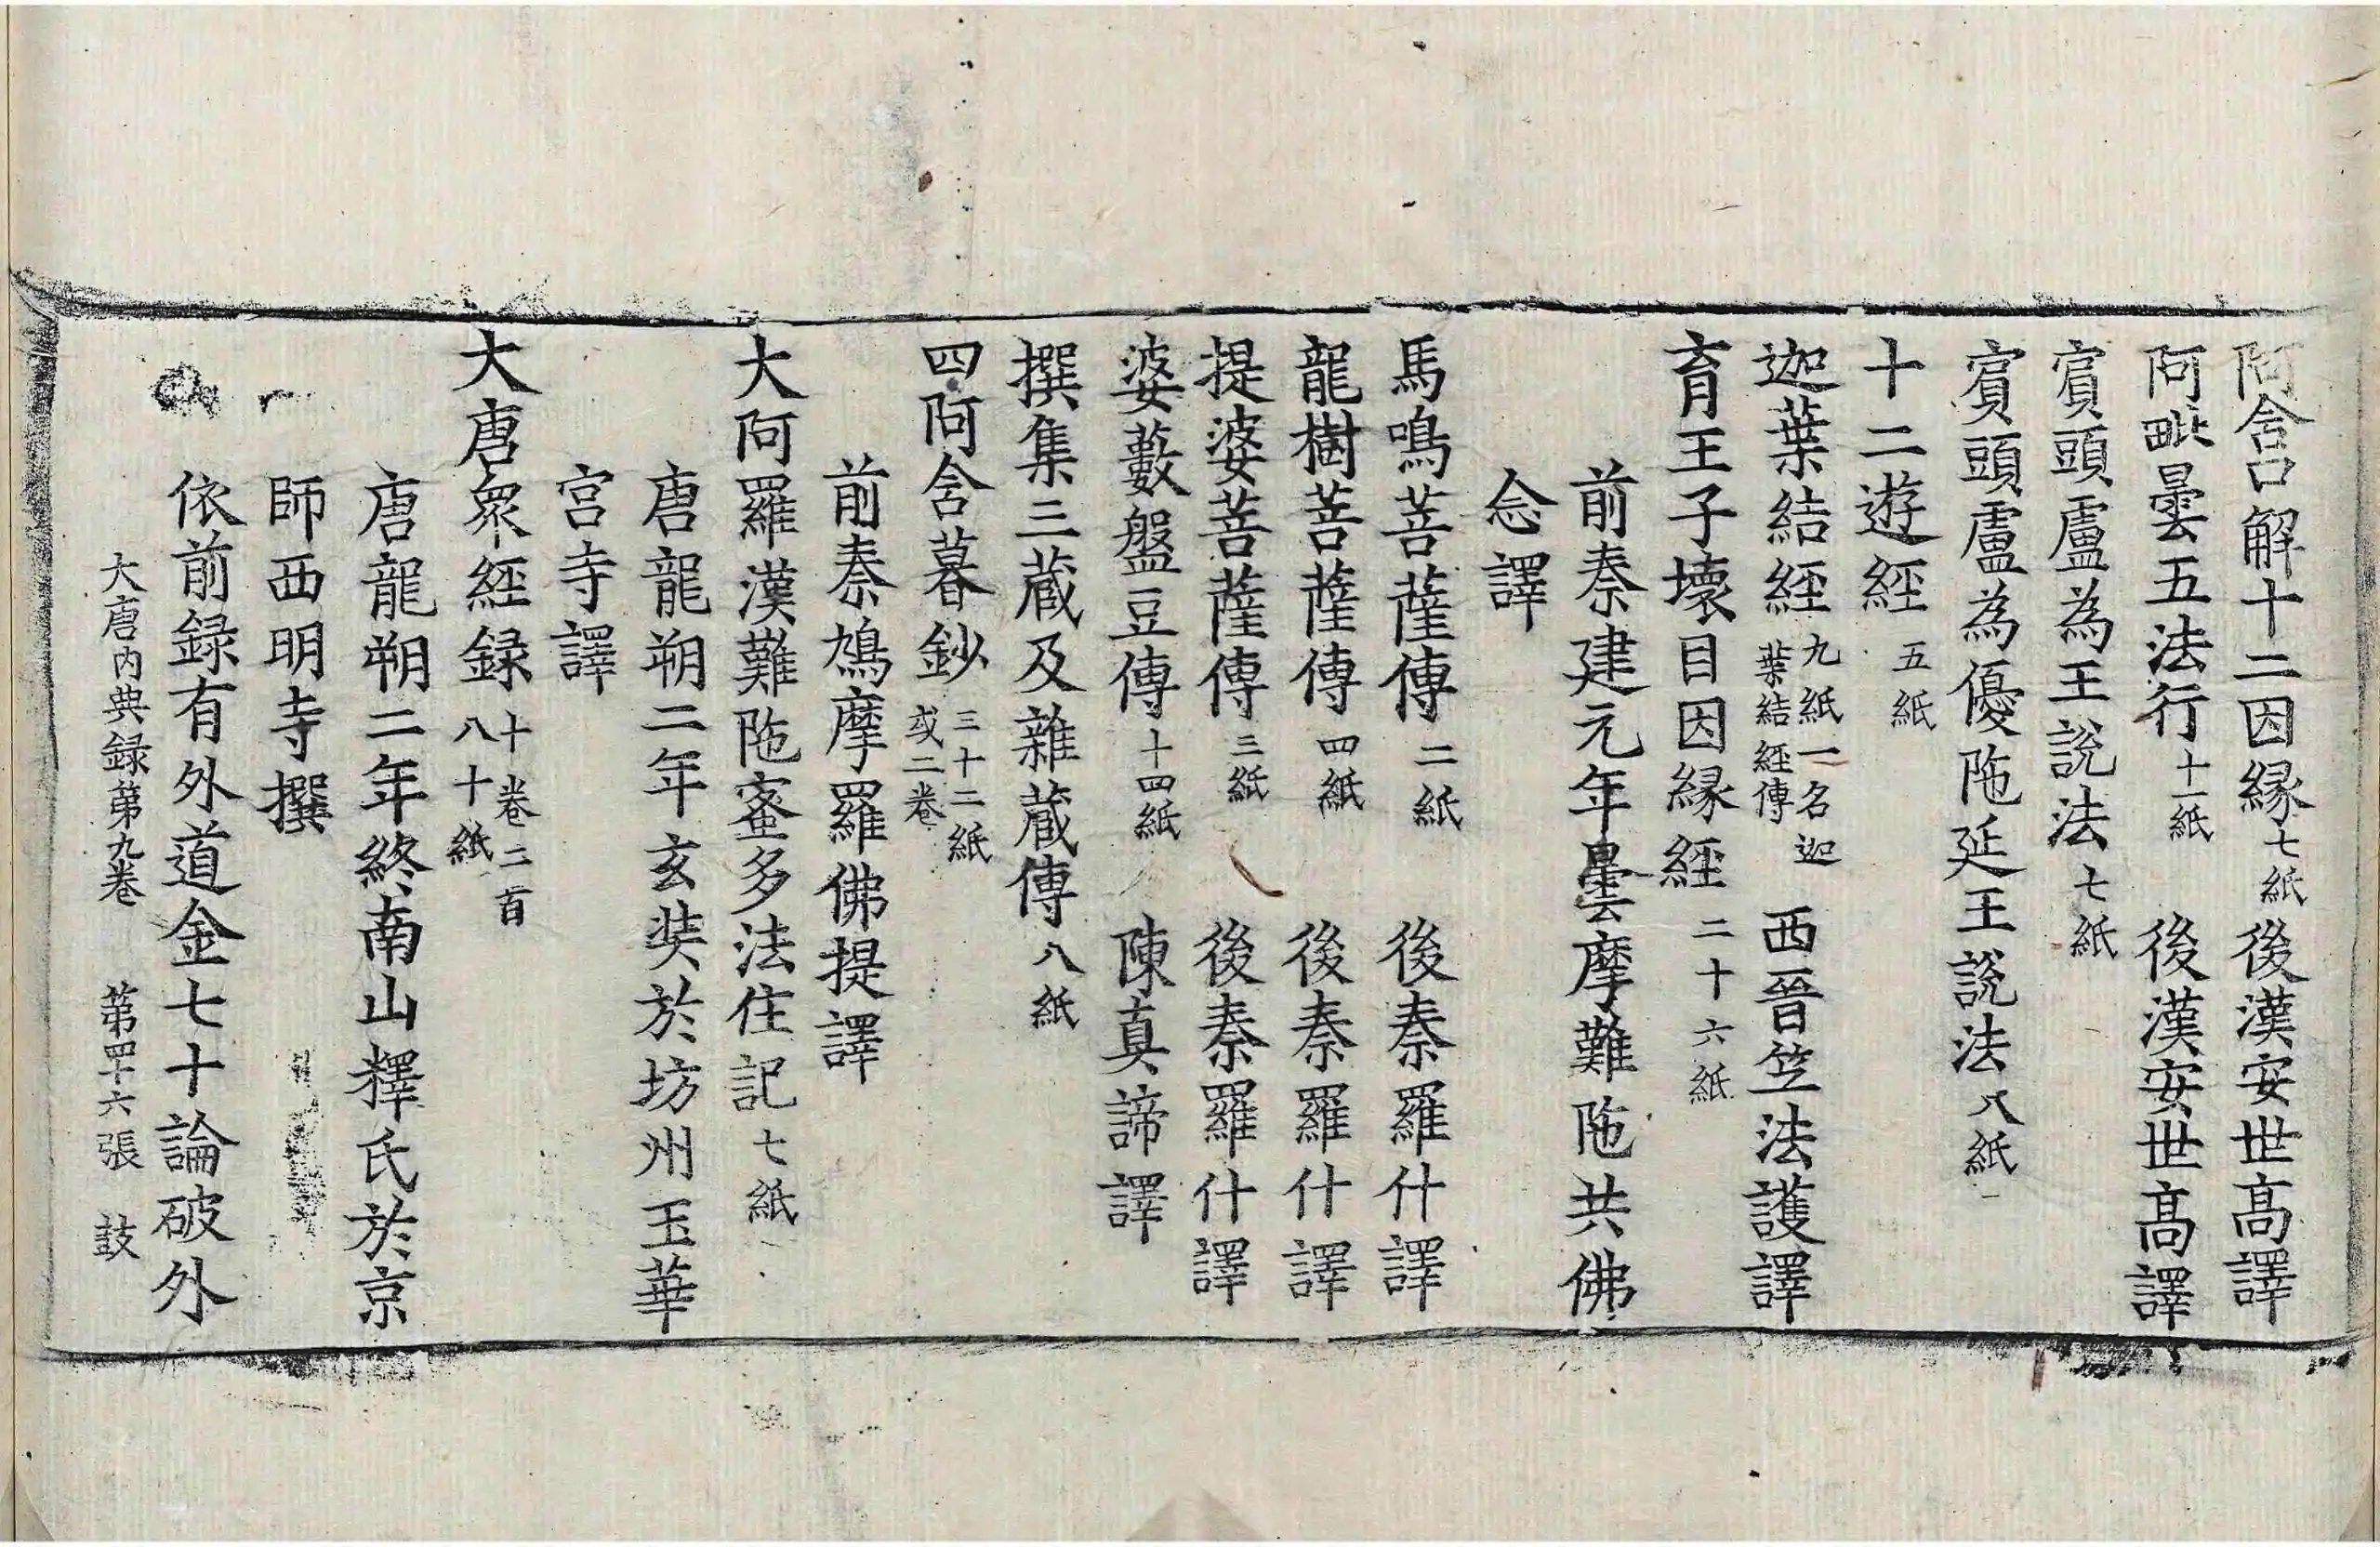 阿含口解十二因縁七紙後漢安世高譯
阿毗曇五法行十一紙 後漢安世高譯
賔頭盧為王說法七紙
賔頭盧為優陁延王說法八紙
十二遊經五紙
迦葉結經九紙一名迦葉結經傳 西晉笠法護譯
育王子壞目因縁經二十六紙
前秦建元年曇摩難陁共佛
念譯
馬鳴菩薩傳二紙 後秦羅什譯
龍樹菩薩傳四紙 後秦羅什譯
提婆菩薩傳三紙 後秦羅什譯
婆藪盤豆傳十四紙 陳真諦譯
撰集三蔵及雜蔵傳八紙
四阿含暮鈔三十二紙或二卷
前秦鳩摩羅佛提譯
大阿羅漢難陁蜜多法住記七紙
唐龍朔二年玄奘於坊州玉華
宮寺譯
大唐衆經録十卷二百八十紙
唐龍朔二年終南山釋氏於京
師西明寺撰
依前録有外道金七十論破外
大唐内典録第九卷 第四十六張 鼓